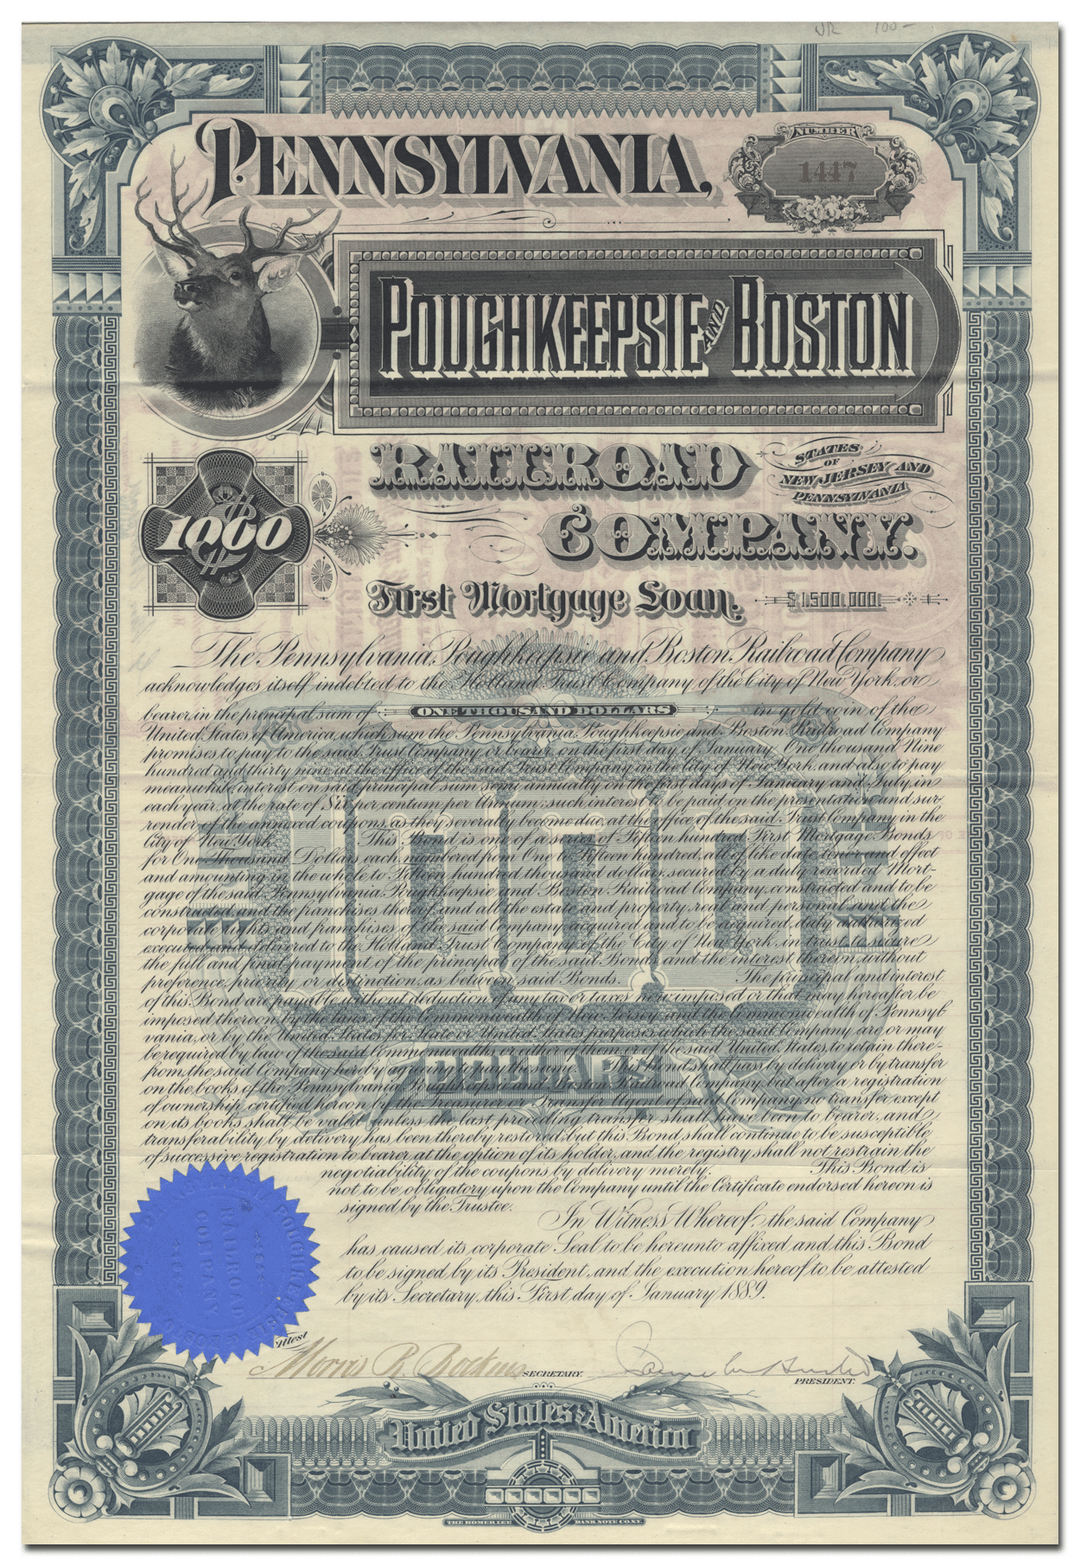 PENNSYLVANIA,
NUMBER
1447
POUGHKEEPSIE AND BOSTON
RAILROAD
STATES
OF
NEW JERSEY AND
PENNSYLVANIA
COMPANY.
$1000
First Mortgage Loan. $1,500,000
The Pennsylvania, Poughkeepsie and Boston Railroad Company
acknowledges itself indebted to the Holland Trust Company of the City of New York, or
bearer, in the principal sum of ONE THOUSAND DOLLARS in gold coin of the
United States of America which sum the Pennsylvania Poughkeepsie and Boston Railroad Company
promises to pay to the said Trust Company or bearer, on the first day of January One thousand Nine
hundred and thirty nine at the office of the said Trust Company in the City of New York, and also to pay
meanwhile interest on said principal sum semi annually on the first days of January and July, in
each year, at the rate of Six per centum per Annum; such interest to be paid on the presentation and sur-
render of the annexed coupons, as they severally become due, at the office of the said Trust Company in the
City of New York. This Bond is one of a series of Fifteen hundred First Mortgage Bonds
for One Thousand Dollars each, numbered from One to Fifteen hundred, all of like date, tenor and effect
and amounting in the whole to Fifteen hundred thousand dollars, secured by a duly recorded Mort-
gage of the said Pennsylvania Poughkeepsie and Boston Railroad Company, constructed and to be
constructed, and the franchises thereof, and all the estate and property, real and personal, and the
corporate rights and franchises of the said Company acquired and to be acquired, duly
executed and delivered to the Holland Trust Company of the City of New York, in trust to secure
the full and final payment of the principal of the said Bonds and the interest thereon, without
preference, priority or distinction, as between said Bonds. The principal and interest
of this Bond are payable without deduction of any tax or taxes now imposed or that may hereafter be
imposed thereon by the laws of the Commonwealth of New Jersey and the Commonwealth of Pennsyl-
vania, or by the United States for State or United States purposes which the said Company are or may
be required by law of the said Commonwealths or either of them or of the said United States, to retain there-
from, the said Company hereby agreeing to pay the same. Bond shall pass by delivery or by transfer
on the books of the Pennsylvania Poughkeepsie and Boston Railroad Company, but after a registration
of ownership certified hereon of the Treasurer or Transfer Agent of said Company, no transfer except
on its books shall be valid unless the last preceding transfer shall have been to bearer, and
transferability by delivery has been thereby restored, but this Bond shall continue to be susceptible
of successive registration to bearer at the option of its holder, and the registry shall not restrain the
negotiability of the coupons by delivery merely. This Bond is
not to be obligatory upon the Company until the Certificate endorsed hereon is
signed by the Trustee. In Witness Whereof, the said Company
has caused its corporate Seal to be hereunto affixed and this Bond
to be signed by its President, and the execution hereof to be attested
by its Secretary, this First day of January 1889.
DOLLARS
RAILROAD
COMPANY
Attest
Morris R. SECRETARY.
PRESIDENT.
United States of America
THE HOMER LEE BANK NOTE CO. N.Y.